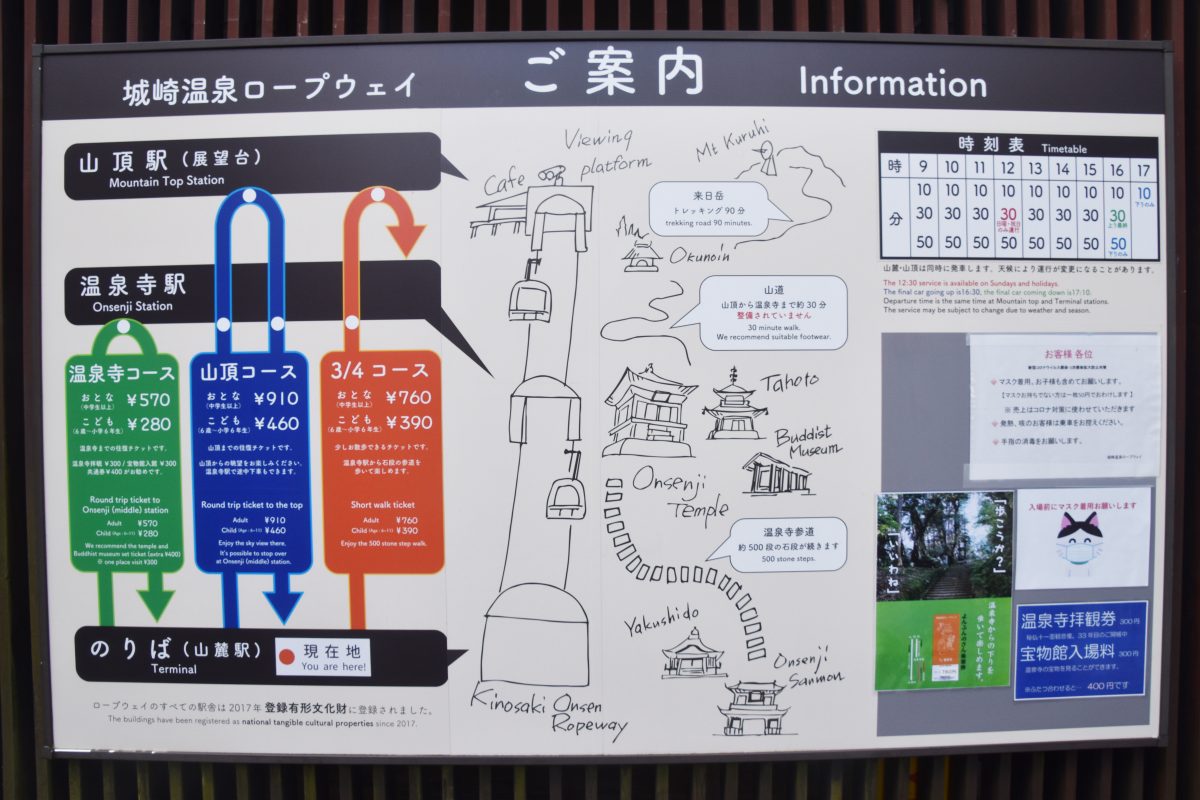 城崎温泉ロープウェイ
ご案内
Information
山頂駅(展望台)
Mountain Top Station
温泉寺駅
Onsenji Station
温泉寺コース
おとな ¥570
(中学生以上)
こども ¥280
(6歳~小学6年生)
温泉寺までの往復チケットです。
温泉寺拝観 ¥300 / 宝物館入館 ¥300
共通券¥400 がお勧めです。
Round trip ticket to
Onsenji (middle) station
Adult ¥570
Child (Age:6-11) ¥280
We recommend the temple and
Buddhist museum set ticket (extra ¥400)
※ one place visit ¥300
山頂コース
おとな ¥910
(中学生以上)
こども ¥460
(6歳~小学6年生)
山頂までの往復チケットです。
山頂からの眺望をお楽しみください。
温泉寺駅で途中下車もできます。
Round trip ticket to the top
Adult ¥910
Child (Age:6-11) ¥460
Enjoy the sky view there.
It's possible to stop over
at Onsenji (middle) station.
3/4 コース
おとな ¥760
(中学生以上)
こども ¥390
(6歳~小学6年生)
少しお散歩できるチケットです。
温泉寺駅から石段の参道を
歩いて楽しめます。
Short walk ticket
Adult ¥760
Child (Age:6-11) ¥390
Enjoy the 500 stone step walk.
のりば(山麓駅)
Terminal
現在地
You are here!
ロープウェイのすべての駅舎は2017年 登録有形文化財に登録されました。
The buildings have been registered as national tangible cultural properties since 2017.
Viewing
platform
Cafe
Mt Kuruhi
来日岳
トレッキング90分
trekking road 90 minutes.
Okunoin
山道
山頂から温泉寺まで約30分
整備されていません
30 minute walk.
We recommend suitable footwear.
Tahoto
Buddhist
Museum
Onsenji
Temple
温泉寺参道
約500段の石段が続きます
500 stone steps.
Yakushido
Onsenji
Sanmon
Kinosaki Onsen
Ropeway
時刻表 Timetable
時 9 10 11 12 13 14 15 16 17
分
10 10 10 10 10 10 10 10 10
下りのみ
30 30 30 30 30 30 30 30
日曜・祝日
のみ運行
上り最終
50 50 50 50 50 50 50 50
下りのみ
山麓・山頂は同時に発車します。天候により運行が変更になることがあります。
The 12:30 service is available on Sundays and holidays.
The final car going up is16:30, the final car coming down is17:10.
Departure time is the same time at Mountain top and Terminal stations.
The service may be subject to change due to weather and season.
お客様 各位
マスク着用。お子様も含めてお願いします。
【マスクお持ちでない方は一枚50円でおわけします】
※ 売上はコロナ対策に使わせていただきます
発熱、咳のお客様は乗車をお控えください。
手指の消毒をお願いします。
城崎温泉ロープウェイ
「歩こうか?」
「いいわね」
温泉寺からの下りを
歩いて楽しめます。
入場前にマスク着用お願いします
温泉寺拝観券 300円
秘仏十一面観音像。33年目のご開帳中
宝物館入場料 300円
温泉寺の宝物を見ることができます。
※ふたつ合わせると… 400円です